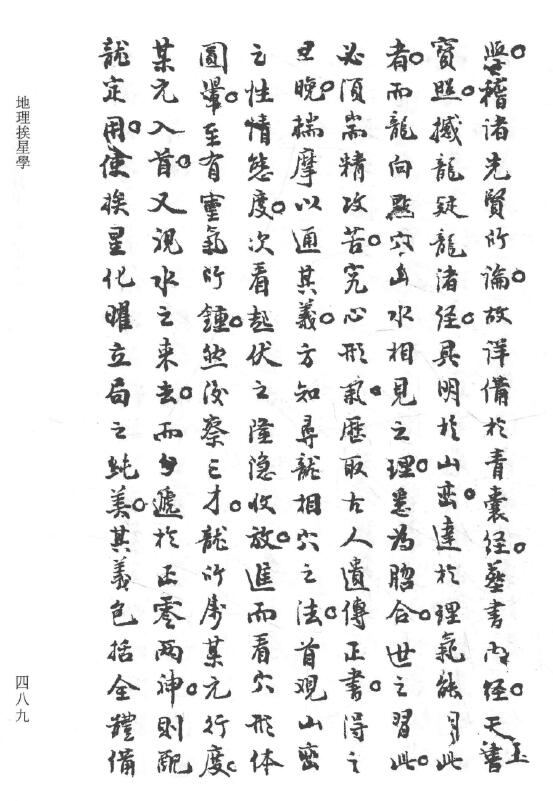 歷稽諸先賢所論。故詳備於青囊經。葬書內經。天玉書
寶照。撼龍疑龍諸經。具明於山巒。達於理氣能明此
者。而龍向點穴山水相見之理。悉為脗合。世之習此。
必須耑精攻苦。究心形氣。歷取古人遺傳正書。得之
旦晚。揣摩以通其義。方知尋龍相穴之法。首觀山巒
之性情態度。次看起伏之隆隱收放。進而看穴形体
圓暈。至有靈氣所鍾。然後察三才。龍所屬某元行度。
某元入首。又視水之來去。而分遞於正零兩神。則配
龍定用。使挨星化曜立局之純美。其義包括全體備
地理挨星學
四八九